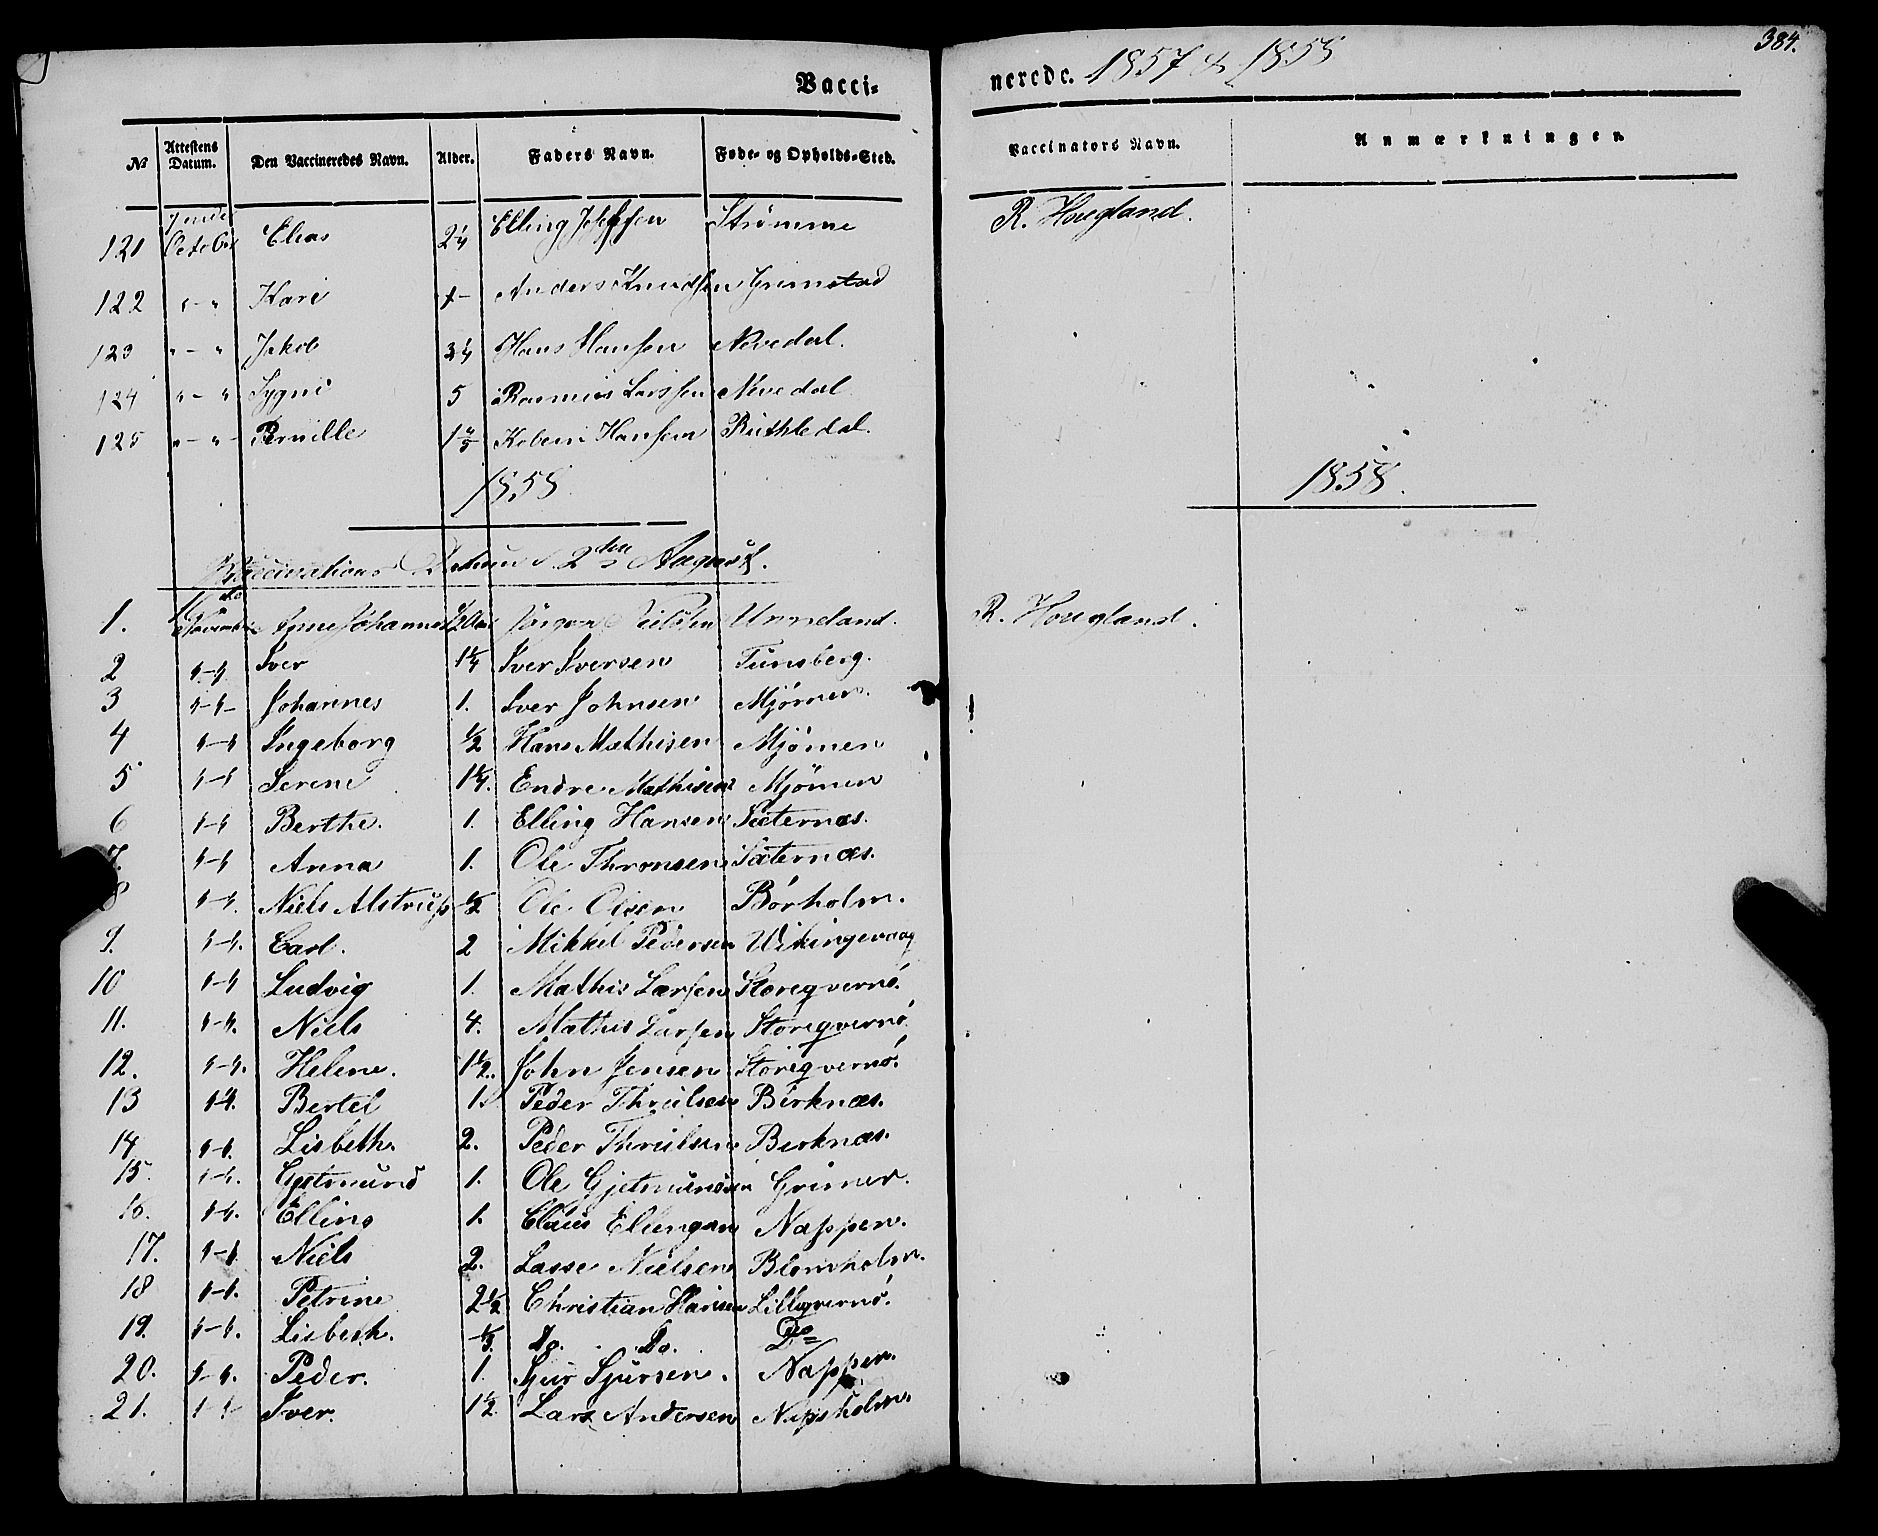 384.
Vacci- nerede. 1857 & 1858
№ Attestens Datum. Den Vaccineredes Navn. Alder. Faders Navn. Føde- og Opholds-Sted. Vaccinators Navn. Anmærkninger.
121 October Elias 2¼ Elling Strømme R. Hougland.
122 "-" Kari 1- Anders Knudsen Grimstad
123 "-" Jakob 3¼ Hans Hansen Nevedal.
124 "-" Sygni 5 Rasmus Larssen Nevedal
125 "-" Pernille 1 Kolbein Hansen Ruthledal.
1858 1858.
Vaccinations Datum 2den August.
1. November Anne Johanne ½ Aar Nielsen Unneland. R. Hougland.
2 "-" Iver 1¼ Iver Iversen Tunsberg.
3 "-" Johannes 1. Iver Johnsen Mjømen.
4 "-" Ingeborg ½ Hans Mathisen Mjømen
5 "-" Serene 1¼. Endre Mathisen Mjømen
6 "-" Berthe. 1. Elling Hansen Sæternæs.
7. "-" Anna 1. Ole Thronsen Sæternæs.
8 "-" Niels Alstrup ½ Ole Olsen Børholm.
9. "-" Carl. 2 Mikkel Pedersen Wikingevaag
10 "-" Ludvig 1. Mathis Larsen Storeqvernø.
11. "-" Niels 4. Mathis Larsen Storeqvernø.
12. "-" Helene. 1½. John Jensen Storeqvernø.
13 "-" Bertel 1. Peder Thrulsen Birknæs.
14 "-" Lisbeth. 2. Peder Thrulsen Birknæs.
15. "-" Gjetmund 1. Ole Gjetmundsen Grimen.
16. "-" Elling 1. Claus Ellengsen Nappen.
17. "-" Niels 2. Lasse Nielsen Blomholm.
18 "-" Petrine 2½ Christian Hansen Lilleqvernø.
19. "-" Lisbeth. ⅓. Do. Do. Do
20. "-" Peder. 1. Sjur Sjursen. Nappen.
21. "-" Iver. 1½ Lars Andersen Napsholm.